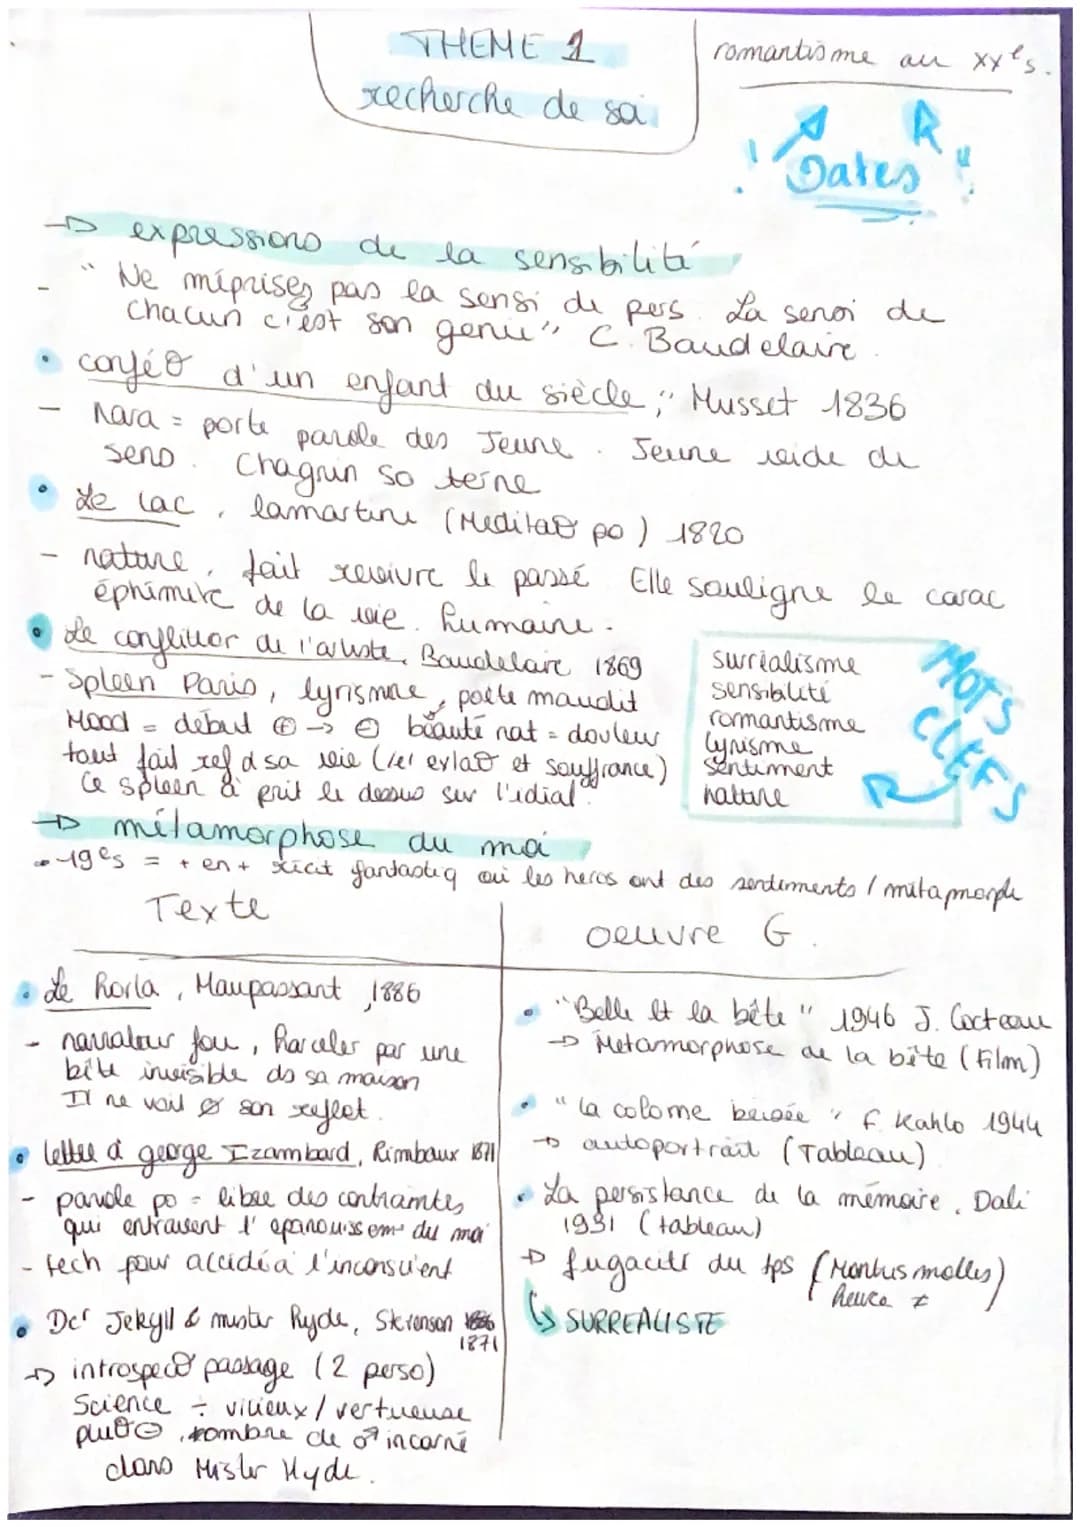 THEME 1
recherche de soi
romantisme au XXe s.
! Dates !
→ expressions de la sensibilité
- "Ne méprisez pas la sensi de pers. La sensi de
chacun c'est son genie" C. Baudelaire.
• confé° d'un enfant du siècle, Musset 1836
- Nara = porte parole des Jeune. Jeune vide de
sens. Chagrin so terne
• Le lac, lamartine (Medita° po) 1820
- nature, fait revivre le passé Elle souligne le carac
éphémère de la vie humaine.
• Le confiteor de l'artiste, Baudelaire 1869
- Spleen Paris, lyrisme, poète maudit
Mood = début ⊕ → ⊖ beauté nat = douleur
tout fait ref à sa vie ( et souffrance)
Ce spleen à prit le dessus sur l'idial".
surréalisme
sensibilité
romantisme
lyrisme
sentiment
nature
MOTS CLEFS
→ métamorphose du moi
• 19es = + en + récit fantastiq où les heros ont des sentiments / métapmorph
Texte
• Le Horla, Maupassant, 1886
- narrateur fou, harceler par une
bête invisible ds sa maison
Il ne voit ø son reflet.
• lettre à george Izambard, Rimbaux 1871
- parole po = libre des contraintes,
qui entravent l'épanouissemt du moi
- tech pour accidéà l'inconscient
• Dcr Jekyll & mister Hyde, Stevenson 1886
1871
→ introspec° passage (2 perso)
Science ÷ vicieux / vertueuse
 ⊖, sombre de ♂ incarné
dans Mister Hyde.
oeuvre G.
• "Belle et la bête" 1946 J. Cocteau
→ Métamorphose de la bête (Film)
• "la colome brisée", F. Kahlo 1944
→ autoportrait (Tableau)
• La persistance de la mémoire, Dali
1931 (tableau)
→ fugacité du tps (Montres molles)
heure ≠
↳ SURREALISTE